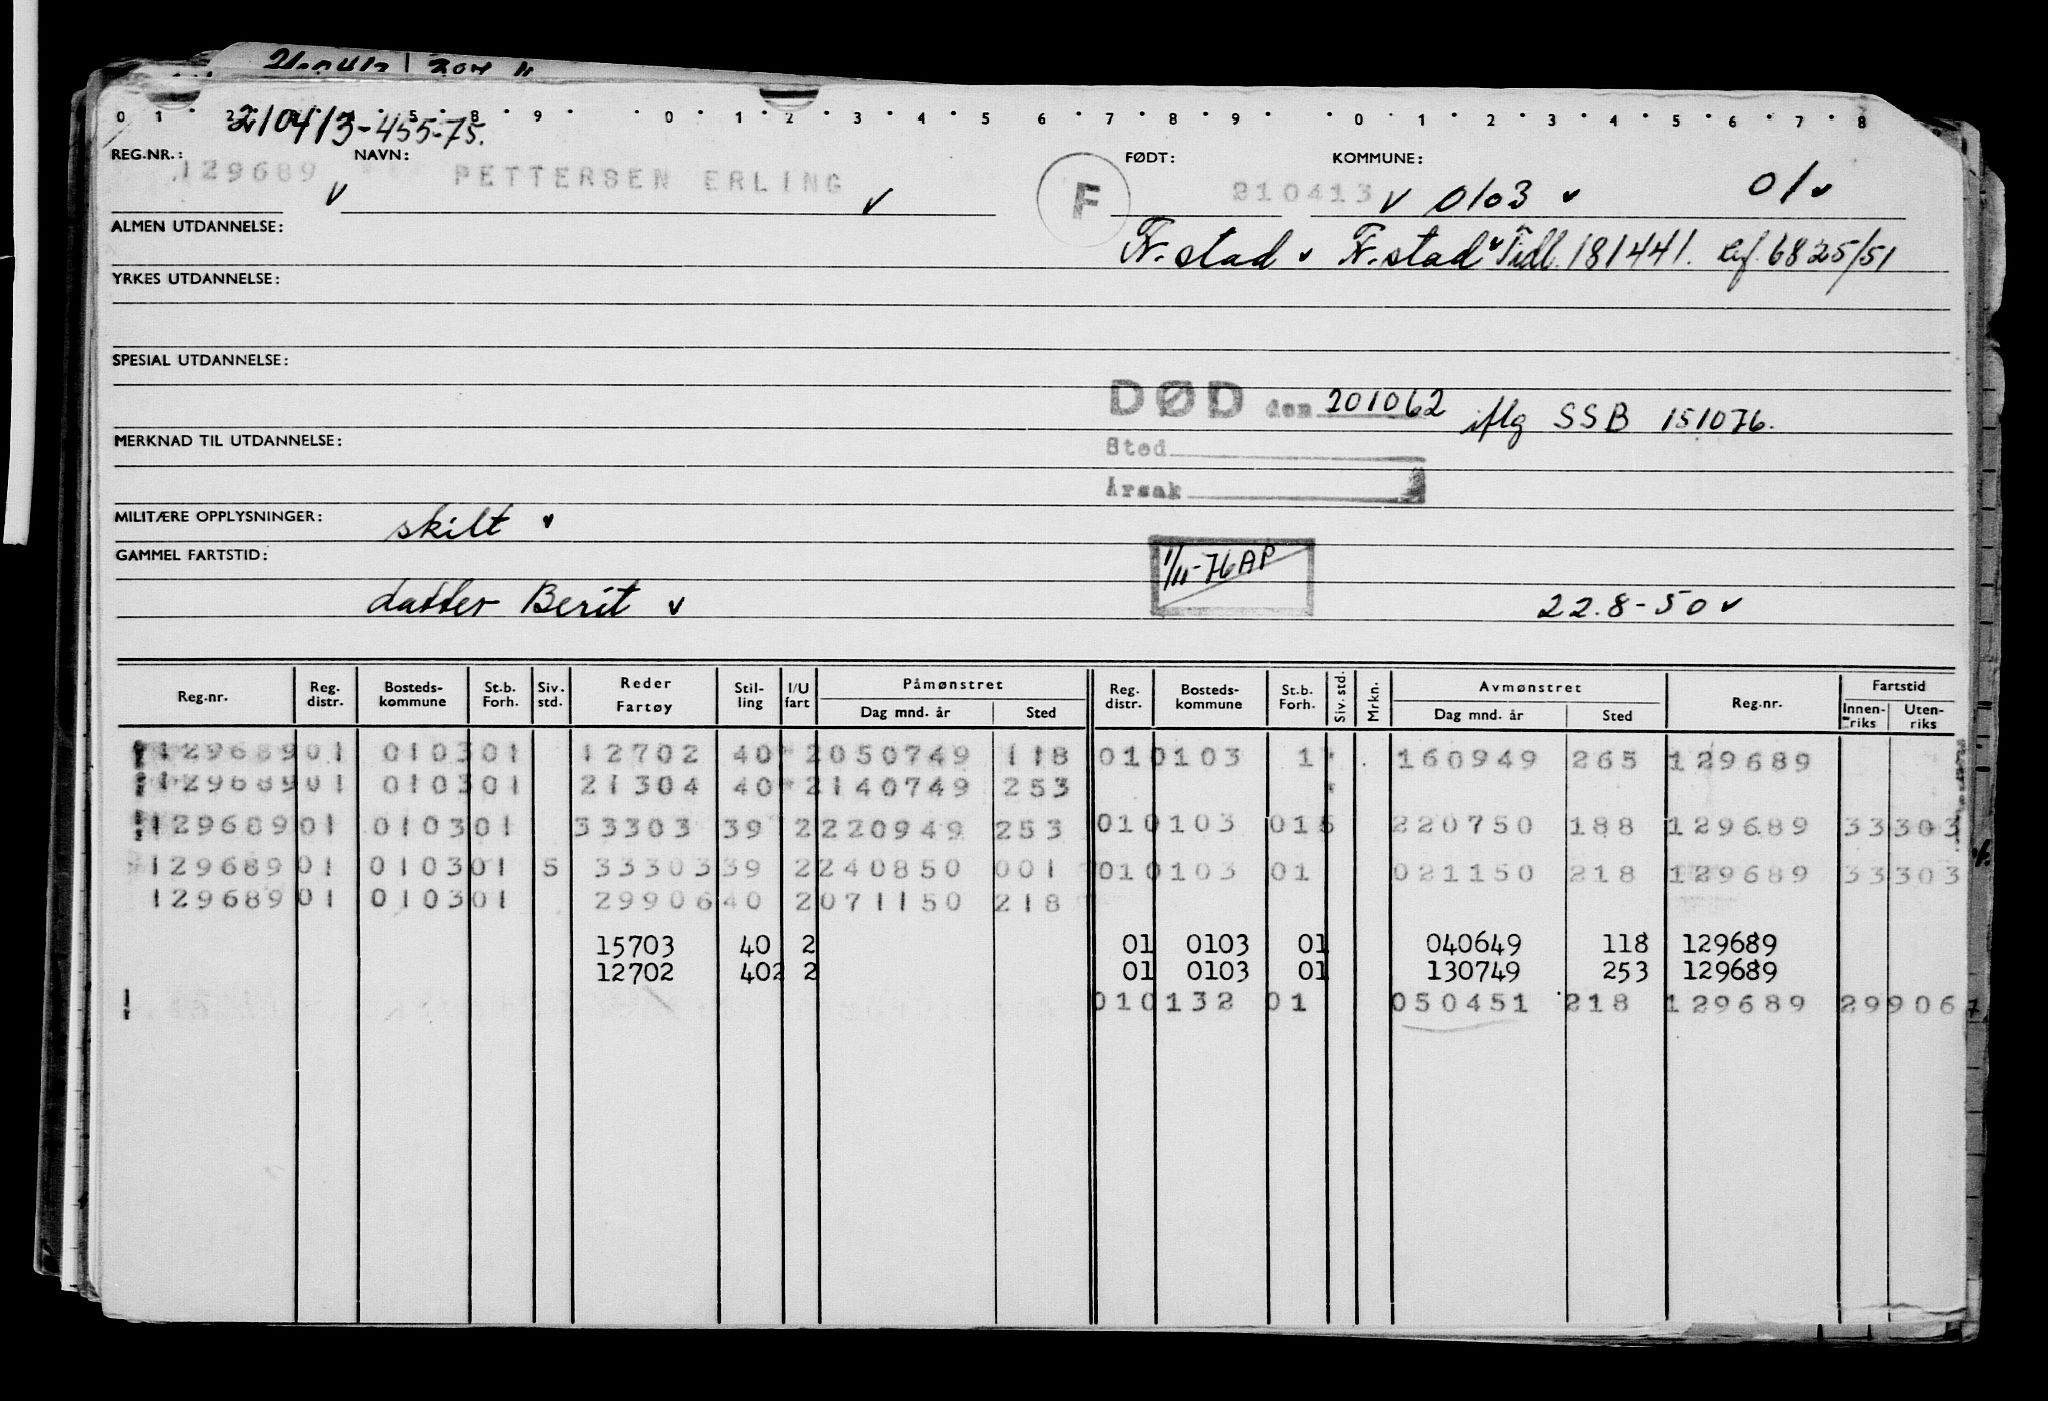 0 1 2 5 8 9 0 1 2 3 4 5 6 7 8 9 0 1 2 3 4 5 6 7 8
210413-455-75.
REG.NR.: 129689 v NAVN: PETTERSEN ERLING v F FØDT: 210413 v KOMMUNE: 0103 v 01 v
ALMEN UTDANNELSE: Fr.stad v Fr.stad v Tidl. 181441. Ref. 6825/51
YRKES UTDANNELSE:
SPESIAL UTDANNELSE:
DØD den 201062 iflg SSB 151076.
MERKNAD TIL UTDANNELSE: Sted
Årsak
MILITÆRE OPPLYSNINGER: skilt v
GAMMEL FARTSTID: 1/11-76 AP
datter Berit v 22.8-50 v
Reg.nr. Reg. distr. Bosteds-kommune St.b. Forh. Siv. std. Reder Fartøy Stil-ling I/U fart Påmønstret Dag mnd. år Sted Reg. distr. Bosteds-kommune St.b. Forh. Siv. std. Mrkn. Avmønstret Dag mnd. år Sted Reg.nr. Fartstid Innen-riks Uten-riks
129689 01 0103 01 12702 40 2 050749 118 01 0103 1 160949 265 129689
129689 01 0103 01 21304 40 2 140749 253
129689 01 0103 01 33303 39 2 220949 253 01 0103 01 5 220750 188 129689 33303
129689 01 0103 01 5 33303 39 2 240850 001 01 0103 01 021150 218 129689 33303
129689 01 0103 01 29906 40 2 071150 218
15703 40 2 01 0103 01 040649 118 129689
12702 402 2 01 0103 01 130749 253 129689
01 0132 01 050451 218 129689 29906 7